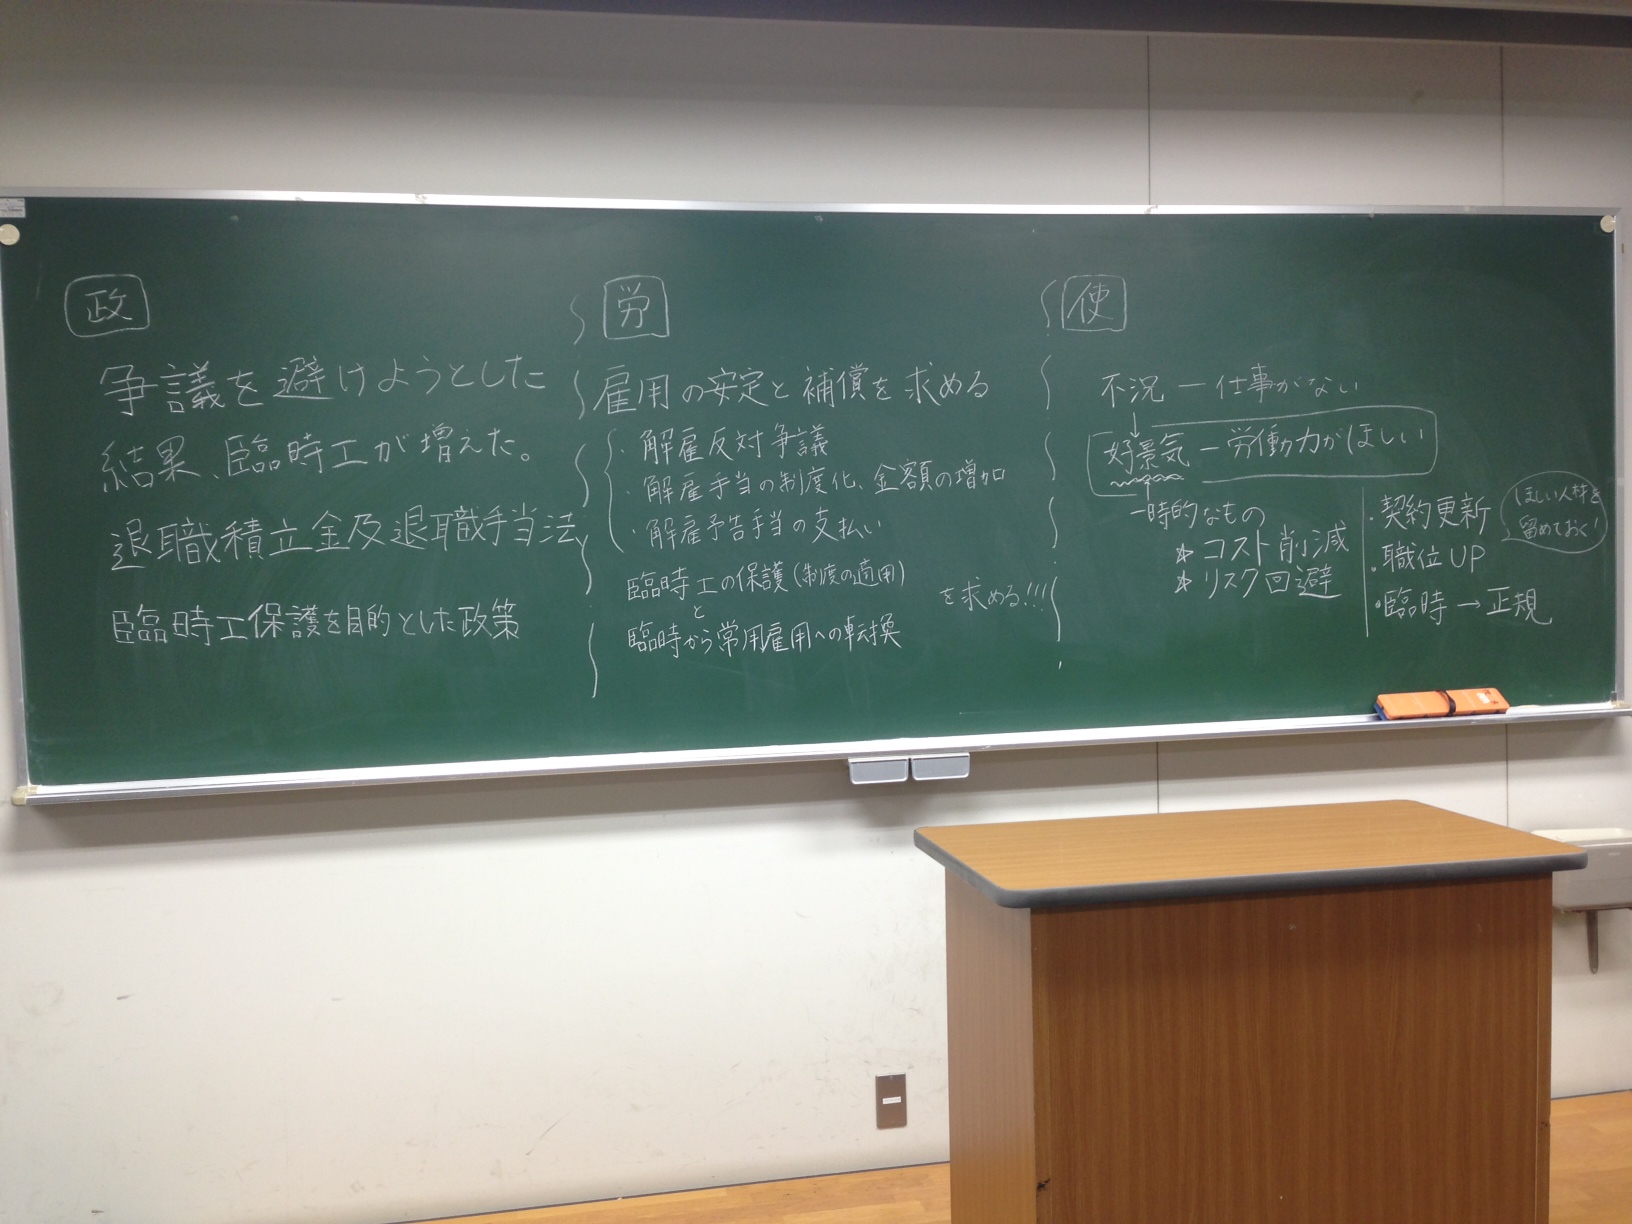 政
争議を避けようとした
結果、臨時工が増えた。
退職積立金及退職手当法
臨時工保護を目的とした政策
労
雇用の安定と補償を求める
・解雇反対争議
・解雇手当の制度化、金額の増加
・解雇予告手当の支払い
臨時工の保護(制度の適用)
と
臨時から常用雇用への転換
を求める!!!
使
不況 ー 仕事がない
↓
好景気 ー 労働力がほしい
一時的なもの
☆ コスト削減
☆ リスク回避
・契約更新
・職位UP
・臨時→正規
ほしい人材を
留めておく!